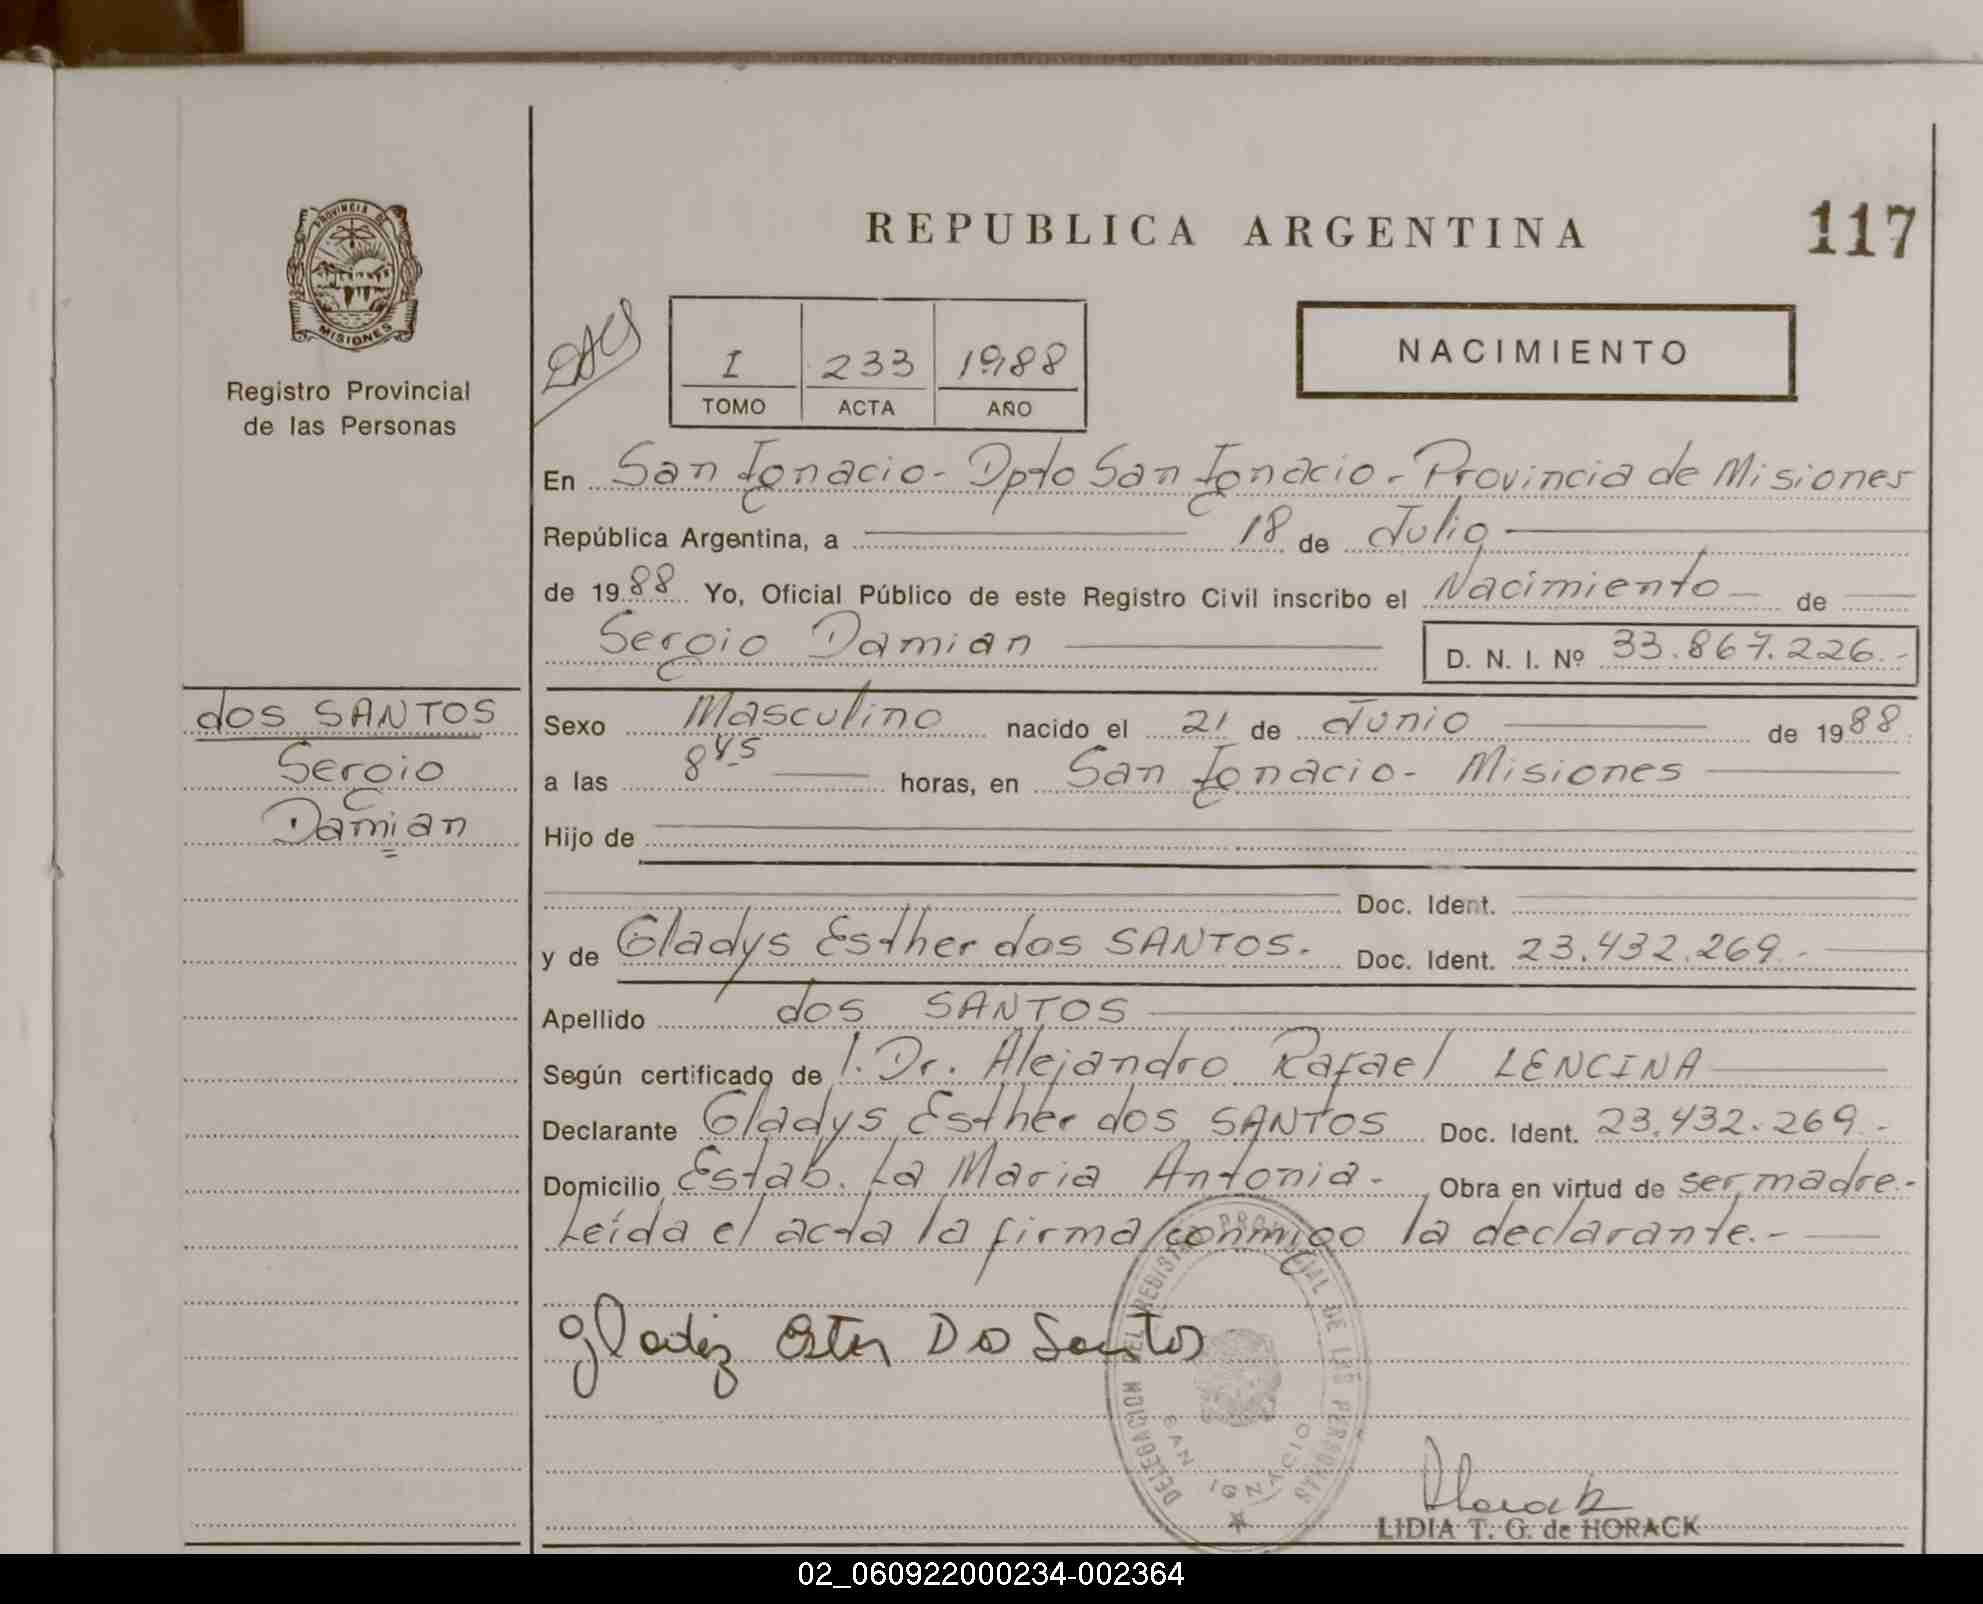 REPUBLICA ARGENTINA
117
PROVINCIA DE
MISIONES
Registro Provincial
de las Personas
I 233 1988
TOMO ACTA AÑO
NACIMIENTO
En San Ignacio - Dpto San Ignacio - Provincia de Misiones
República Argentina, a 18 de Julio
de 1988 Yo, Oficial Público de este Registro Civil inscribo el Nacimiento de
Sergio Damian
D. N. I. Nº 33.867.226.-
dos SANTOS
Sergio
Damian
Sexo Masculino nacido el 21 de Junio de 1988
a las 8 45 horas, en San Ignacio - Misiones
Hijo de
Doc. Ident.
y de Gladys Esther dos SANTOS. Doc. Ident. 23.432.269.-
Apellido dos SANTOS
Según certificado de l. Dr. Alejandro Rafael LENCINA
Declarante Gladys Esther dos SANTOS Doc. Ident. 23.432.269.-
Domicilio Estab. La Maria Antonia.- Obra en virtud de ser madre.-
Leída el acta la firma conmigo la declarante.-
gladiz Ester Dos Santos
DELEGACION DEL REGISTRO PROVINCIAL DE LAS PERSONAS
SAN IGNACIO
Horack
LIDIA T. G. de HORACK
02_060922000234-002364